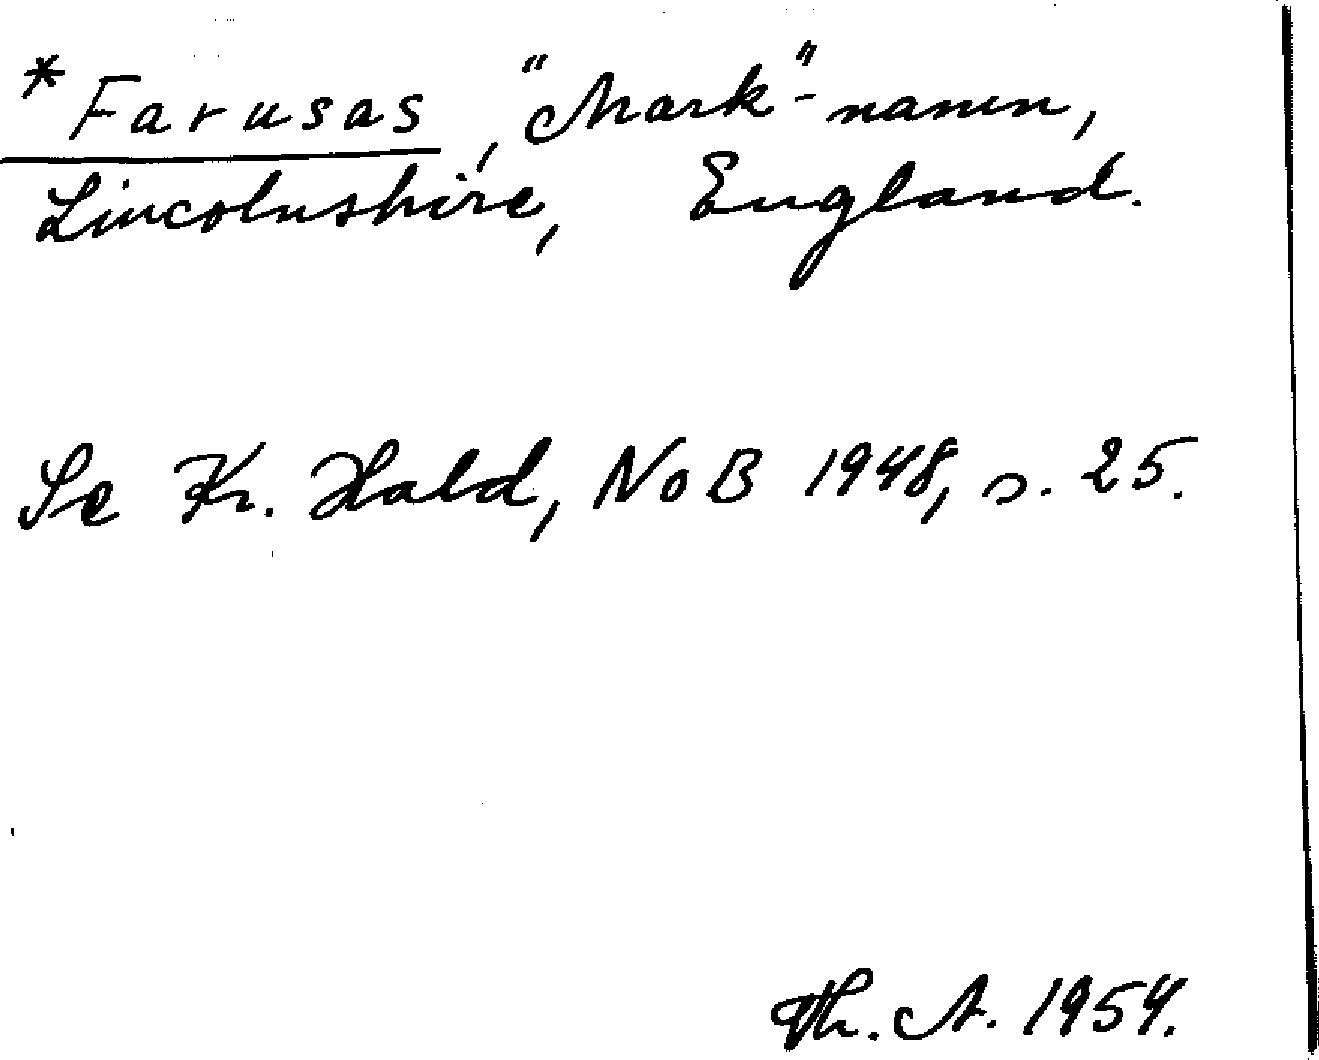 *Farusas, "Mark"-namn,
Lincolnshire, England.
Se Kr. Hald, NoB 1948, s. 25.
Th. A. 1954.